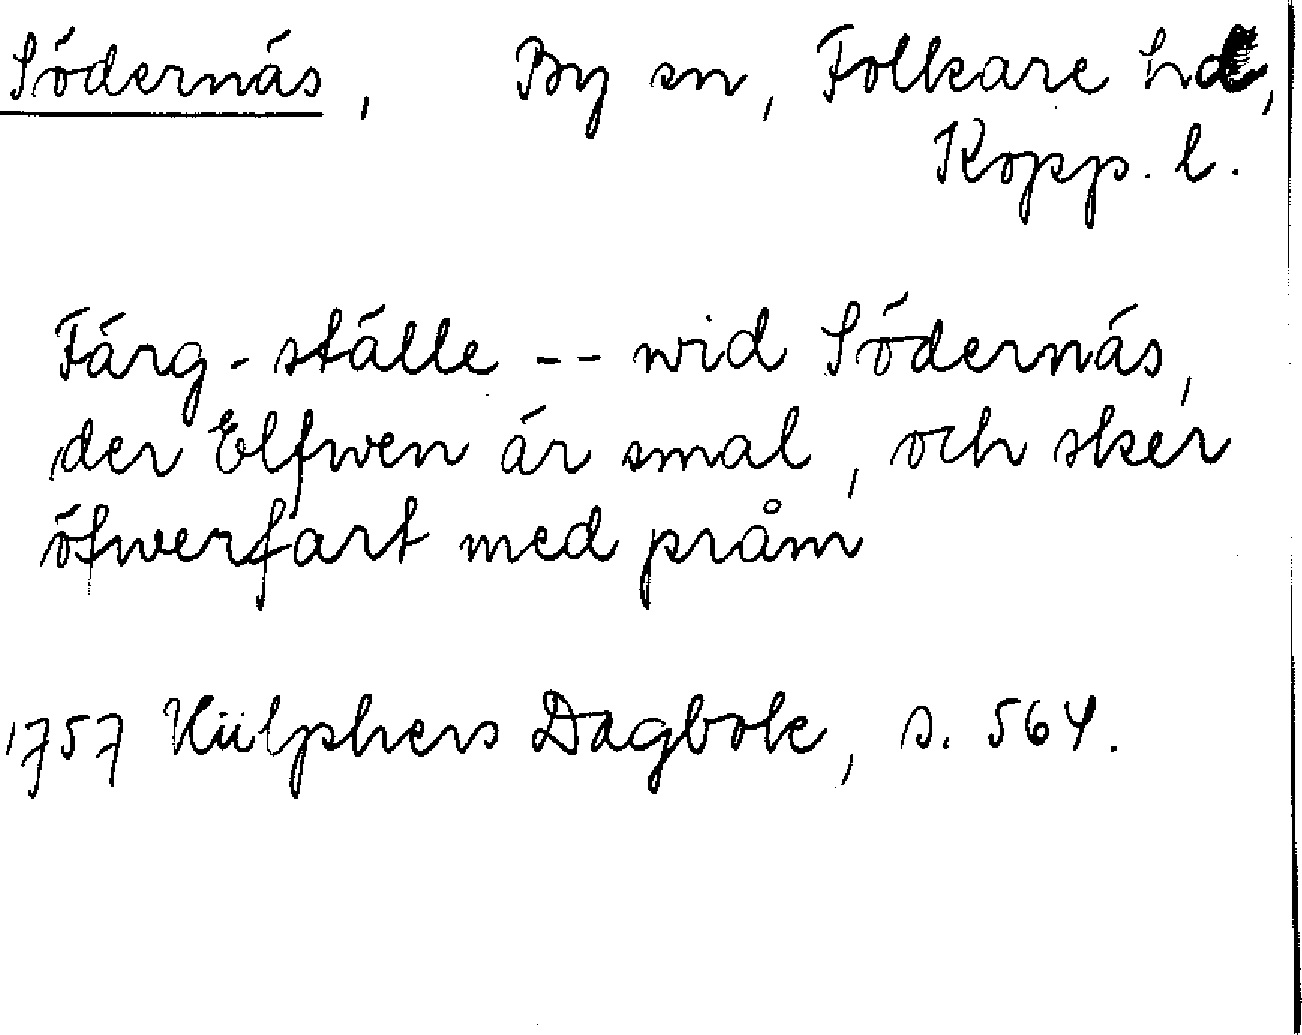 Södernäs, By sn, Folkare hd,
Kopp. l.
Färg-ställe -- wid Södernäs,
der Elfwen är smal, och sker
öfwerfart med pråm
1757 Hülphers Dagbok, s. 564.